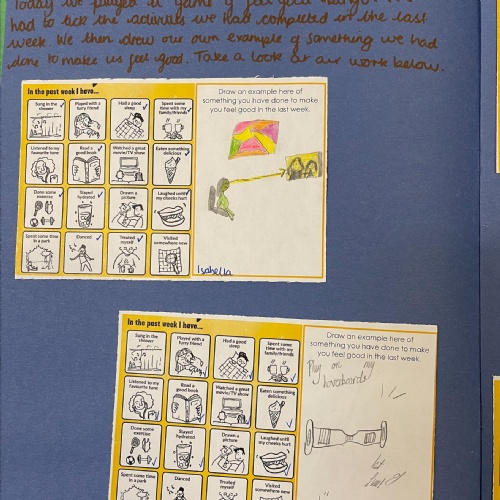 Today we played a game of feel good
had to tick the activities we had completed in the last
week. We then drew our own example of something we had
done to make us feel good. Take a look at our work below.
In the past week I have...
Sung in the shower
Played with a furry friend
Had a good sleep
Spent some time with my family/friends
Listened to my favourite tune
Read a good book
Watched a great movie/TV show
Eaten something delicious
Done some exercise
Stayed hydrated
Drawn a picture
Laughed until my cheeks hurt
Spent some time in a park
Danced
Treated myself
Visited somewhere new
Draw an example here of
something you have done to make
you feel good in the last week.
Isabella
In the past week I have...
Sung in the shower
Played with a furry friend
Had a good sleep
Spent some time with my family/friends
Listened to my favourite tune
Read a good book
Watched a great movie/TV show
Eaten something delicious
Done some exercise
Stayed hydrated
Drawn a picture
Laughed until my cheeks hurt
Spent some time in a park
Danced
Treated myself
Visited somewhere new
Draw an example here of
something you have done to make
you feel good in the last week.
Play on my
hoverboard